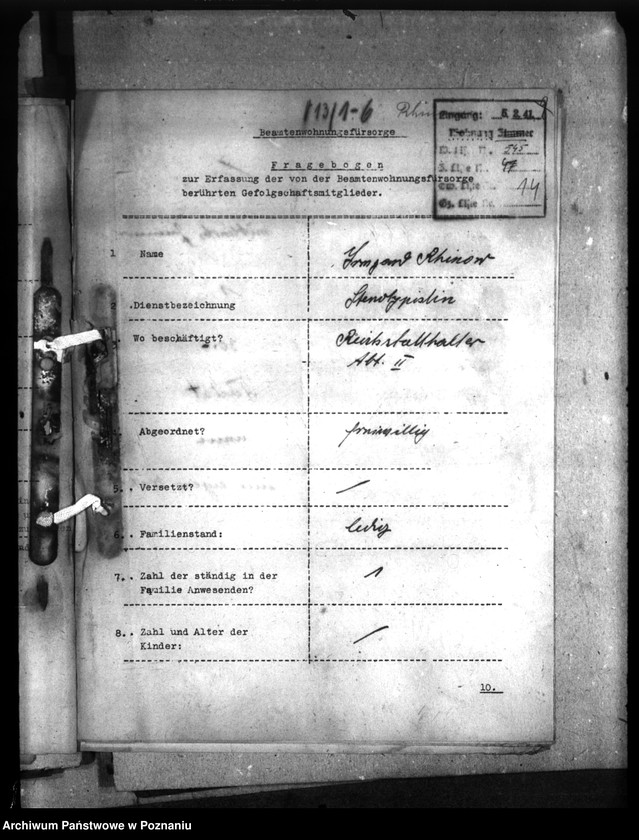 113/1-6
Beamtenwohnungsfürsorge
Eingang: 5.2.41
245
47
14
Fragebogen
zur Erfassung der von der Beamtenwohnungsfürsorge
berührten Gefolgschaftsmitglieder.
1 Name Irmgard Rhinow
2 .Dienstbezeichnung Stenotypistin
Wo beschäftigt? Reichsstatthalter
Abt. II
Abgeordnet? freiwillig
5. . Versetzt? /
6. . Familienstand: ledig
7. . Zahl der ständig in der 1
Familie Anwesenden?
8. . Zahl und Alter der /
Kinder:
10.
Archiwum Państwowe w Poznaniu